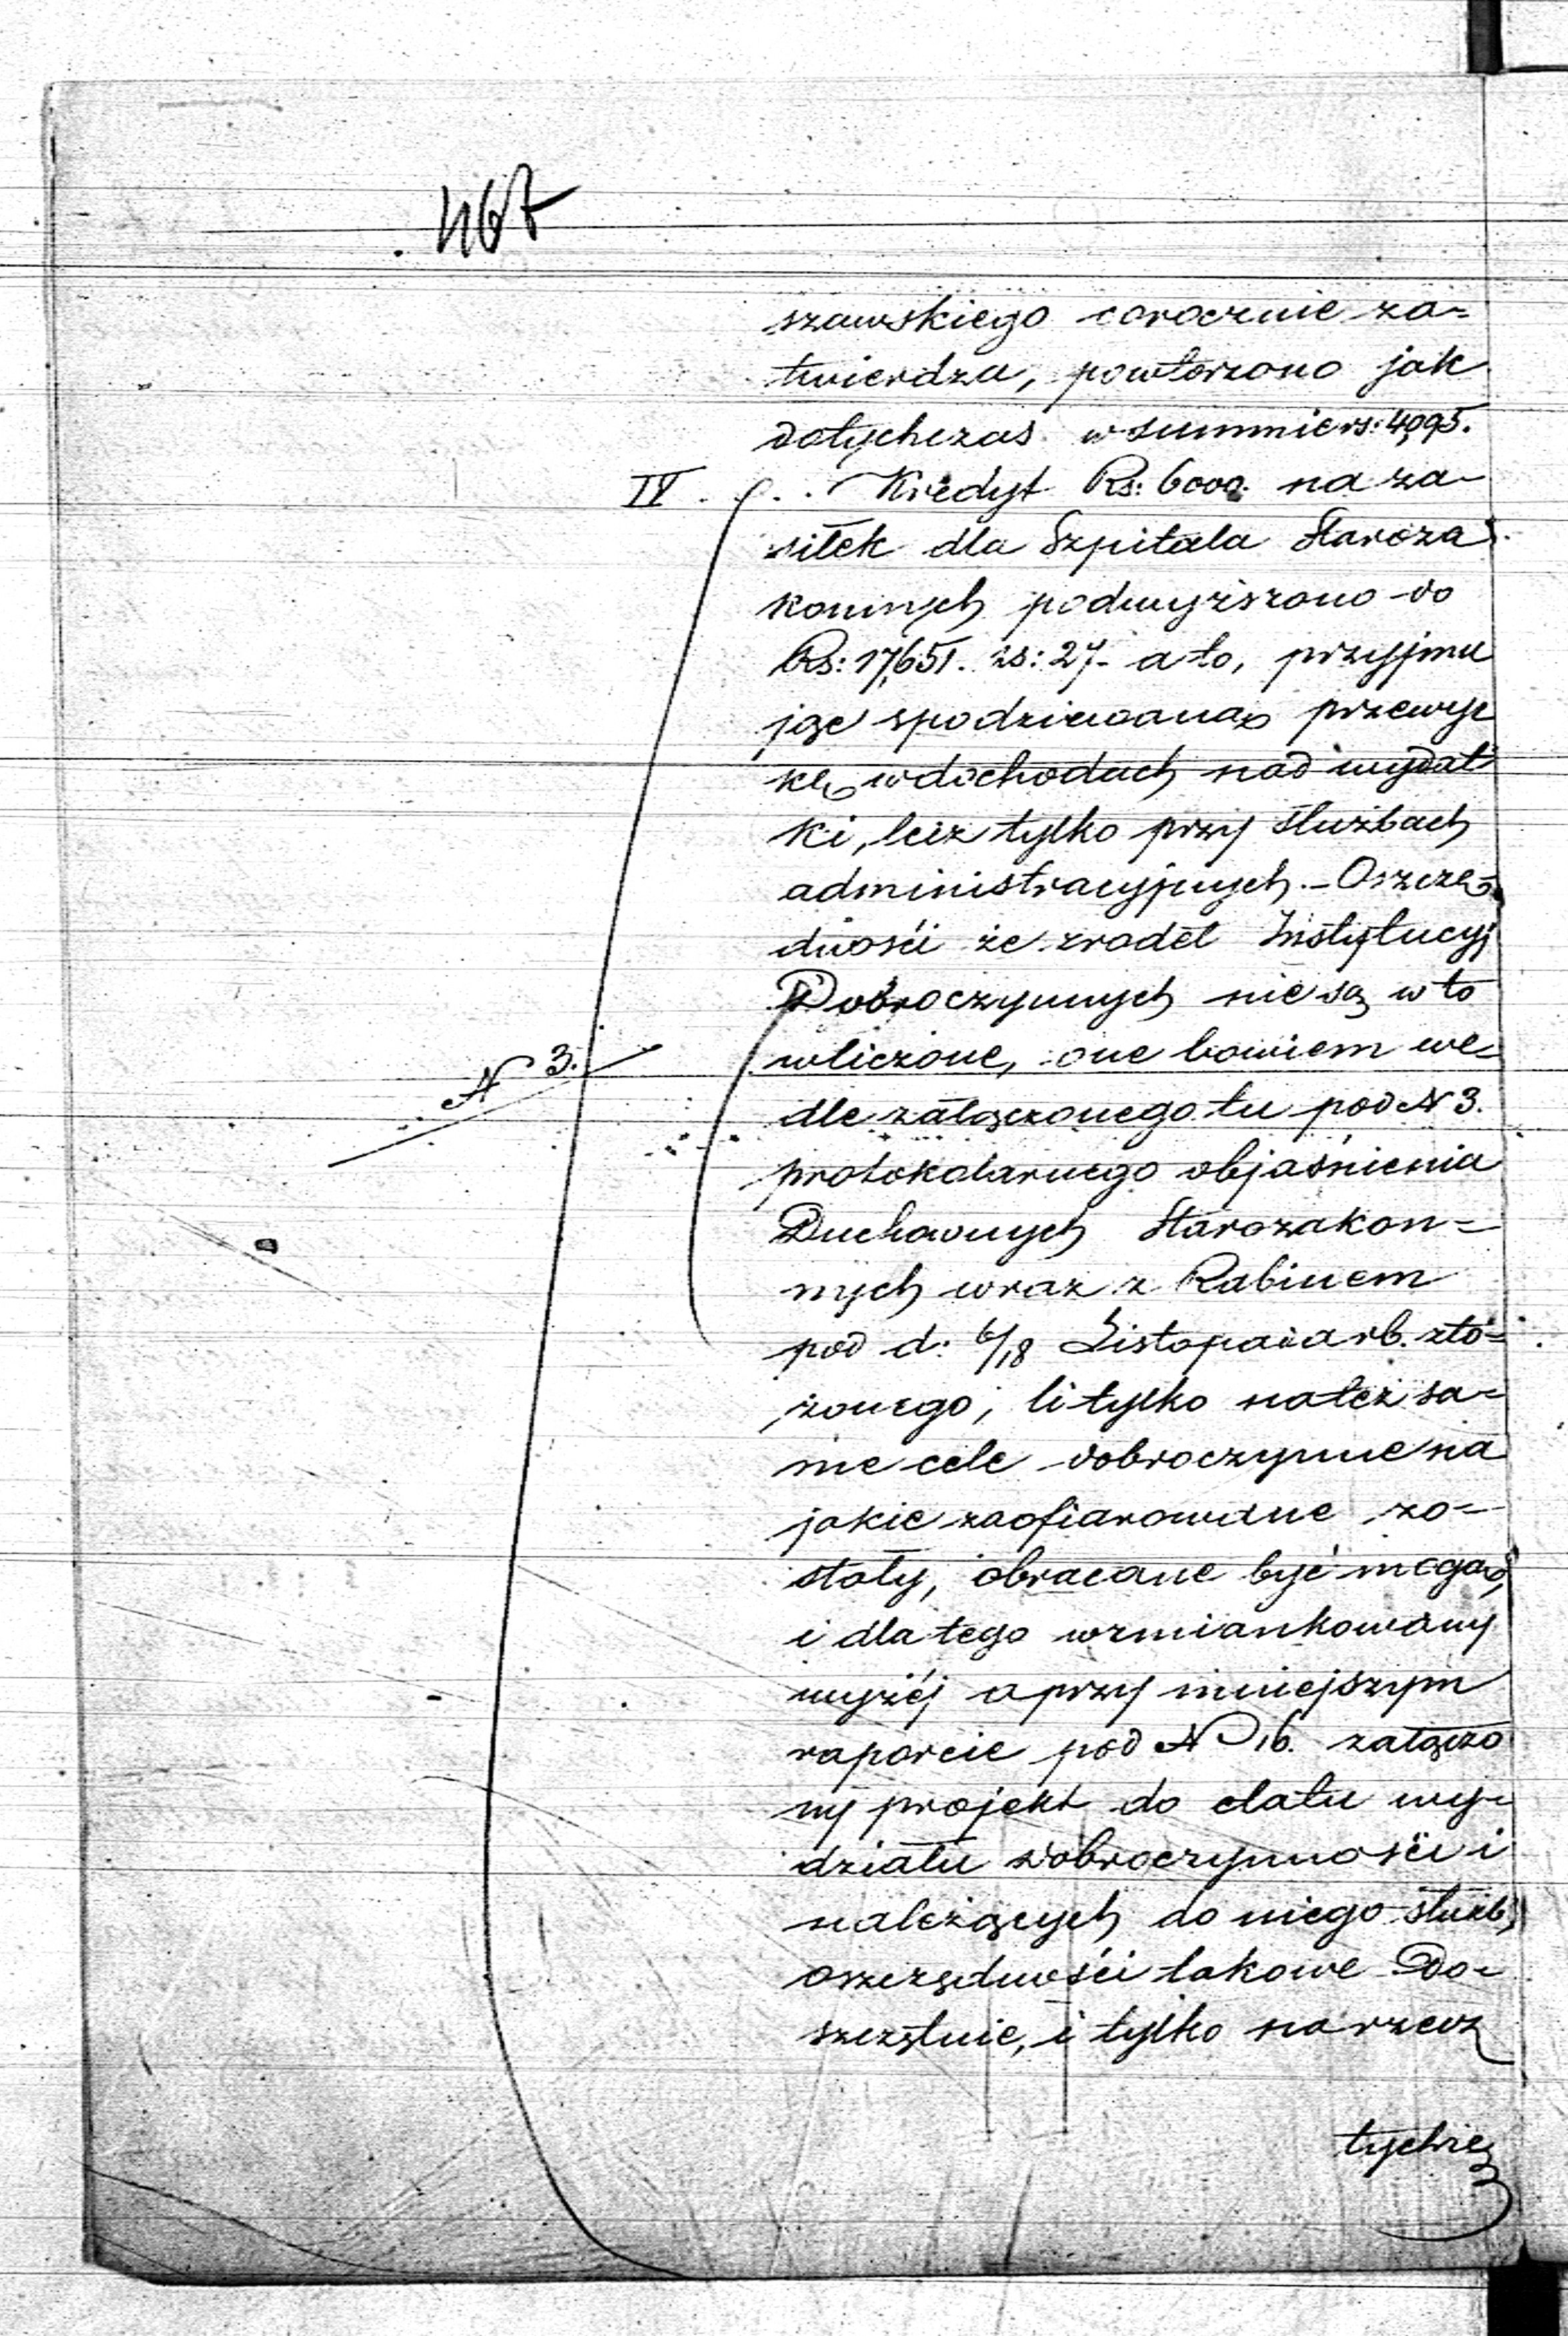 467
szawskiego corocznie za=
twierdza, powtorzono jak
dotychczas w summie rs: 4,095.
IV . . . Kredyt Rs: 6000. na za-
siłek dla Szpitala Staroza
konnych podwyższono do
Rs: 17,651. rs: 27- a to, przyjmu
jąc spodziewaną przewyż
kę w dochodach nad wydat
ki, lecz tylko przy służbach
administracyjnych. - Oszczę-
dności ze zrodeł Instytucyj
Dobroczynnych nie są w to
wliczone, one bowiem we-
N 3.
dle załączonego tu pod N 3.
protokolarnego objaśnienia
Duchownych Starozakon=
nych wraz z Rabinem
pod d: 6/18 Listopada rb. zło=
żonego, li tylko na też sa-
me cele dobroczynne na
jakie zaofiarowane zo=
stały, obracane być mogą,
i dla tego wzmiankowany
wyżéj a przy niniejszym
raporcie pod N 16. załączo
ny projekt do etatu wy-
działu dobroczynności i
należących do niego służb,
oszczędności takowe Do-
szczętnie, i tylko na rzecz
tychże